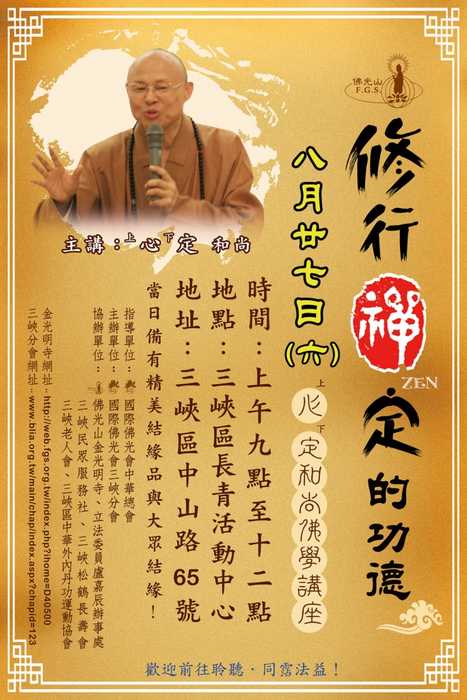 佛光山
F.G.S.
修行禪定的功德
ZEN
八月廿七日(六)
上心下定和尚佛學講座
主講：上心下定 和尚
時間：上午九點至十二點
地點：三峽區長青活動中心
地址：三峽區中山路65號
當日備有精美結緣品與大眾結緣！
指導單位：國際佛光會中華總會
主辦單位：國際佛光會三峽分會
協辦單位：佛光山金光明寺、立法委員盧嘉辰辦事處
三峽民眾服務社、三峽松鶴長壽會
三峽老人會、三峽區中華外內丹功運動協會
金光明寺網址：http://web.fgs.org.tw/index.php?ihome=D40500
三峽分會網址：www.blia.org.tw/main/chap/index.aspx?chapid=123
歡迎前往聆聽．同霑法益！